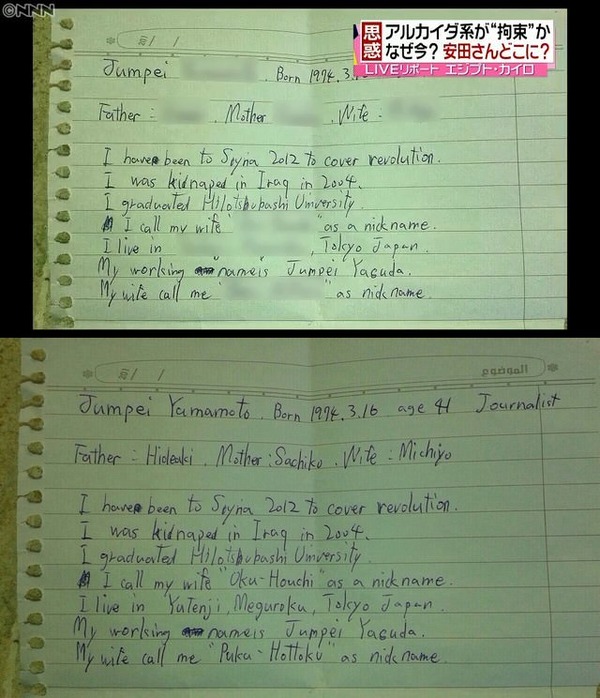 ©NNN
思惑
アルカイダ系が“拘束”か
なぜ今?安田さんどこに?
LIVEリポート エジプト・カイロ
Jumpei . Born 1974.3.16
Father = , Mother , Wife =
I have been to Syria 2012 to cover revolution.
I was kidnaped in Iraq in 2004.
I graduated Hitotsubashi University
I call my wife " " as a nickname.
I live in , Tokyo Japan.
My working name is Jumpei Yasuda.
My wife call me " as nickname.
الموضوع
Jumpei Yamamoto. Born 1974.3.16 age 41 Journalist
Father = Hideaki, Mother : Sachiko, Wife = Michiyo
I have been to Syria 2012 to cover revolution.
I was kidnaped in Iraq in 2004.
I graduated Hitotsubashi University
I call my wife "Oku-Houchi" as a nickname.
I live in Yutenji, Meguroku, Tokyo Japan.
My working name is Jumpei Yasuda.
My wife call me "Puku-Hottoku" as nickname.